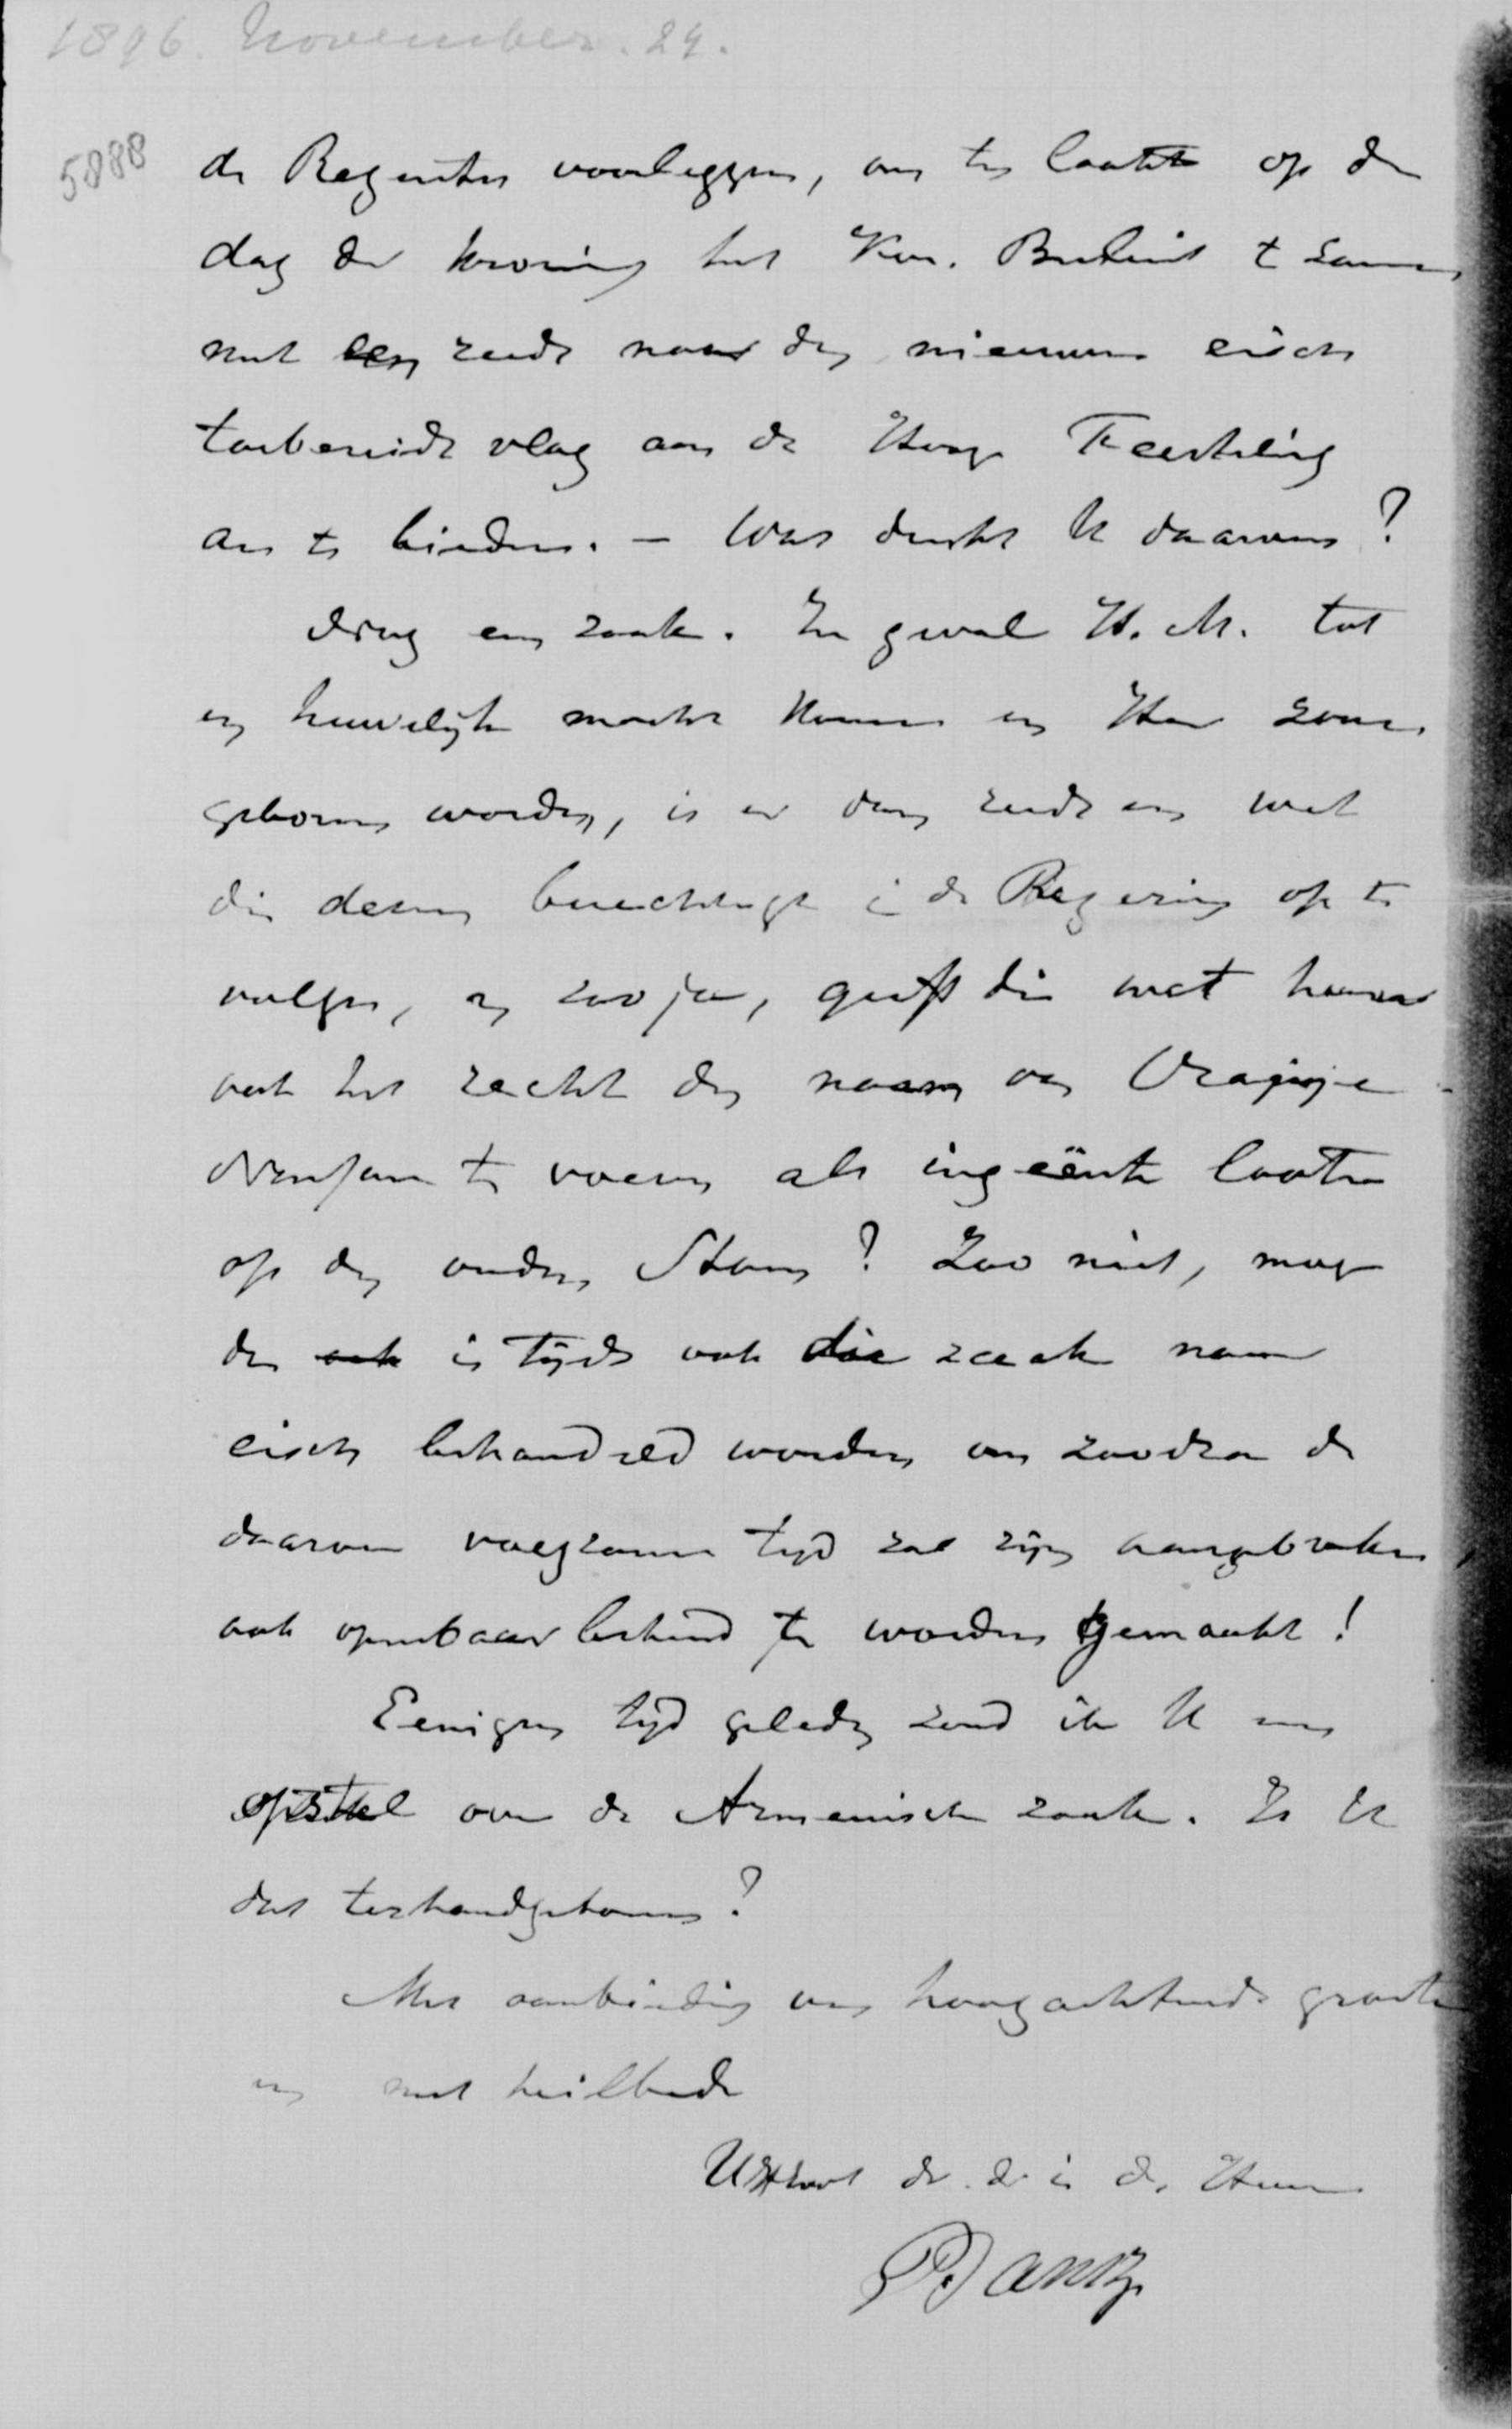 1896. November. 24.
5888
de Regentes voorleggen, om ten laatste op den
dag der kroning het Kon. Besluit te samen
met een reeds naar den nieuwen eisch
toebereide vlag aan de Hooge Feesteling
aan te bieden. — Wat denkt U daarvan?
Nog een zaak. In geval H. M. tot
een huwelijk mocht komen en Haar zonen
geboren worden, is er dan reeds een wet
die dezen berechtigt in de Regering op te
volgen, en zoo ja, geeft die wet hun
ook het recht den naam van Oranje
Nassau te voeren als ingeënte looten
op den ouden Stam? Zoo niet, moge
dan ook in tijds ook die zaak naar
eisch behandeld worden, om zoodra de
daarvoor voegzame tijd zal zijn aangebroken,
ook openbaar bekend te worden gemaakt!
Eenigen tijd geleden zond ik U een
opstel over de Armenische zaak. Is U
dat terhandgekomen?
Met aanbieding van hoogachtende groeten
en met heilbede
UEd. dw. dr. in den Heer